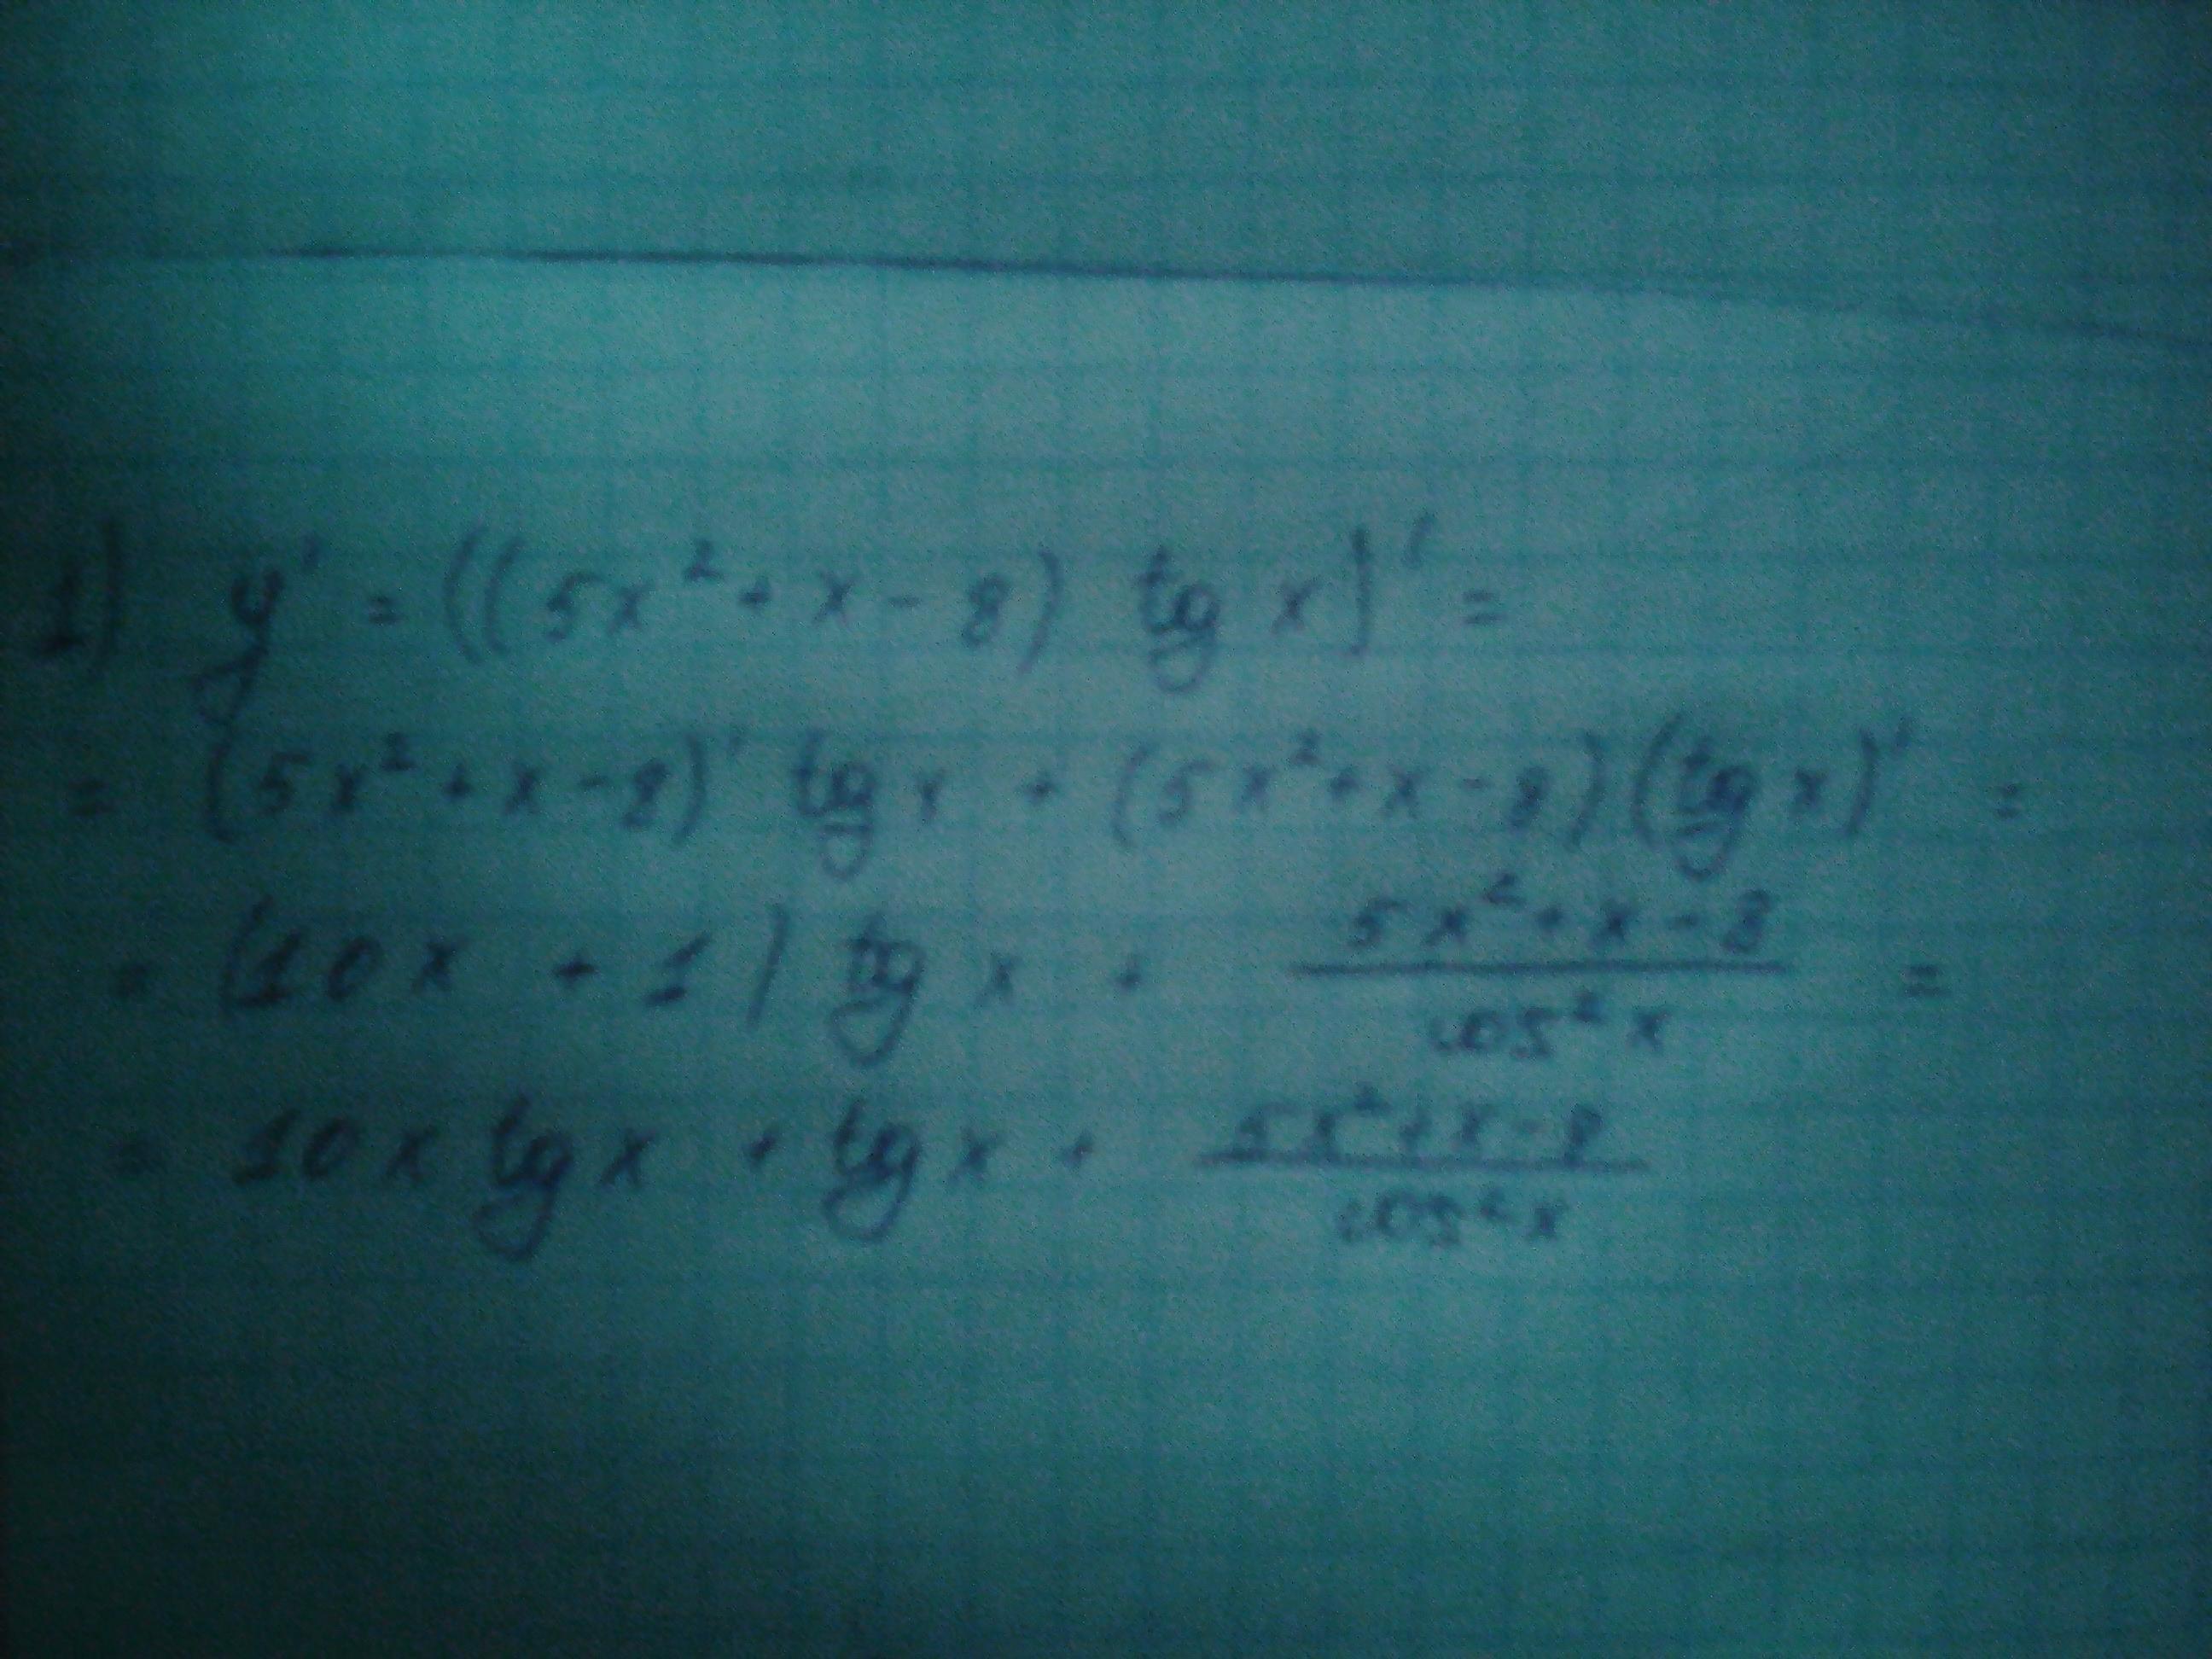 1) y' = ((5x² + x - 8) tg x)' =
= (5x² + x - 8)' tg x + (5x² + x - 8)(tg x)' =
= (10x + 1) tg x + (5x² + x - 8)/(cos² x) =
= 10x tg x + tg x + (5x² + x - 8)/(cos² x)